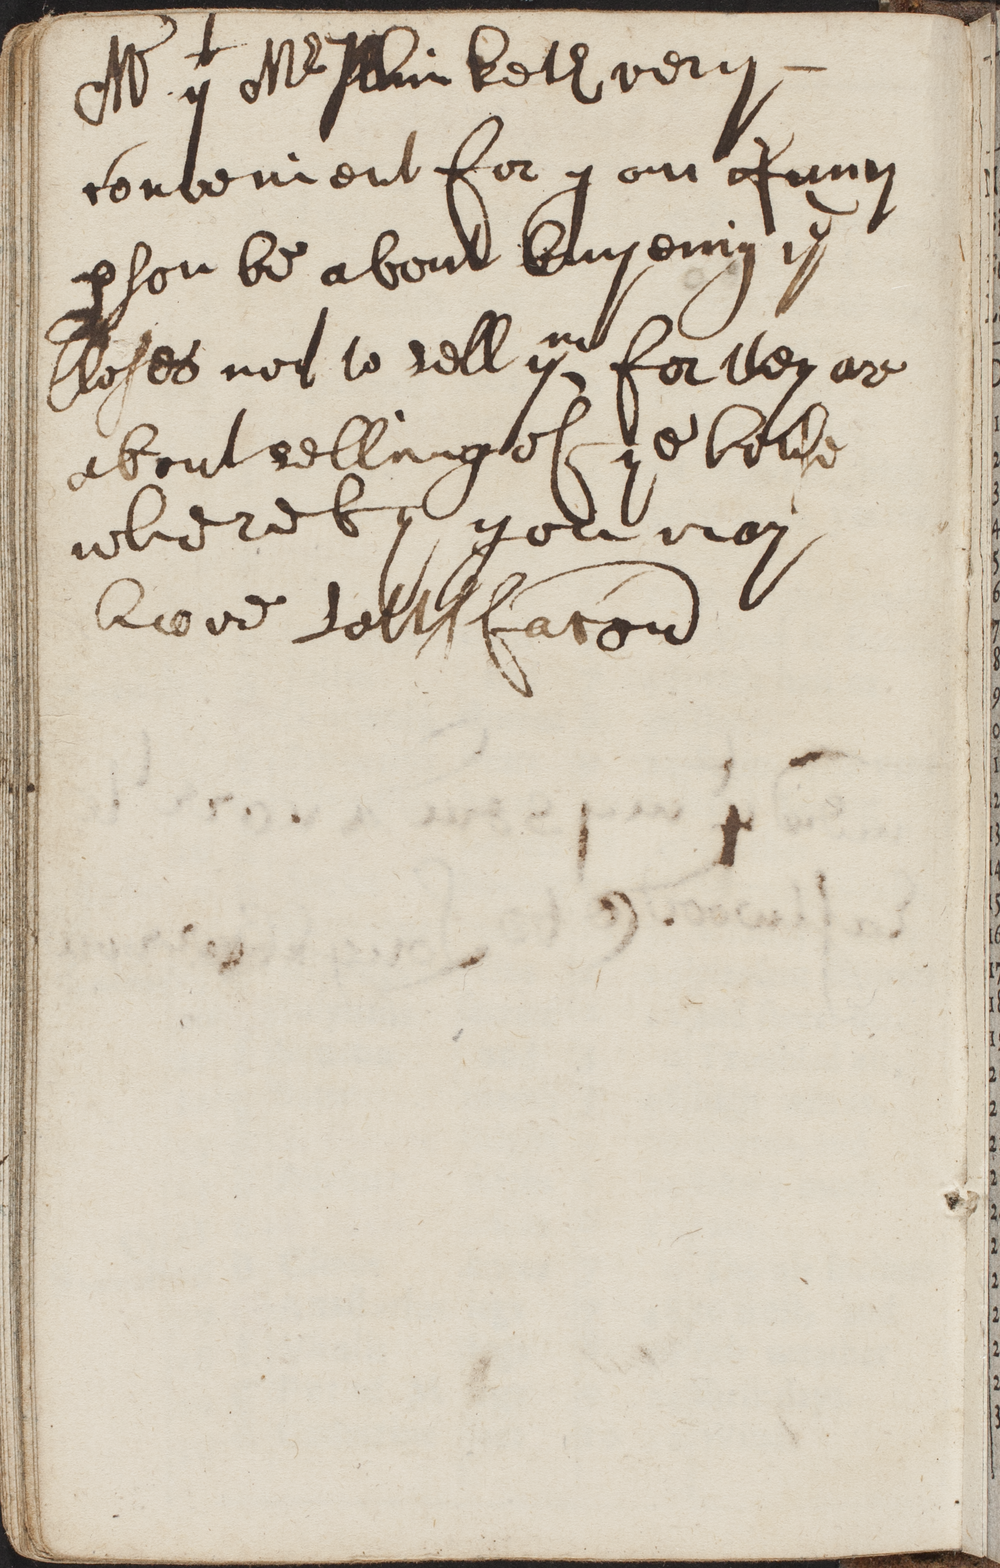 Mr yt Mr Thinketh very -
convenient for you if anny
pson be about buyeing ye
Closes not to sell ym for they are
about selling of ye house
whereby you may
have sattisfacon